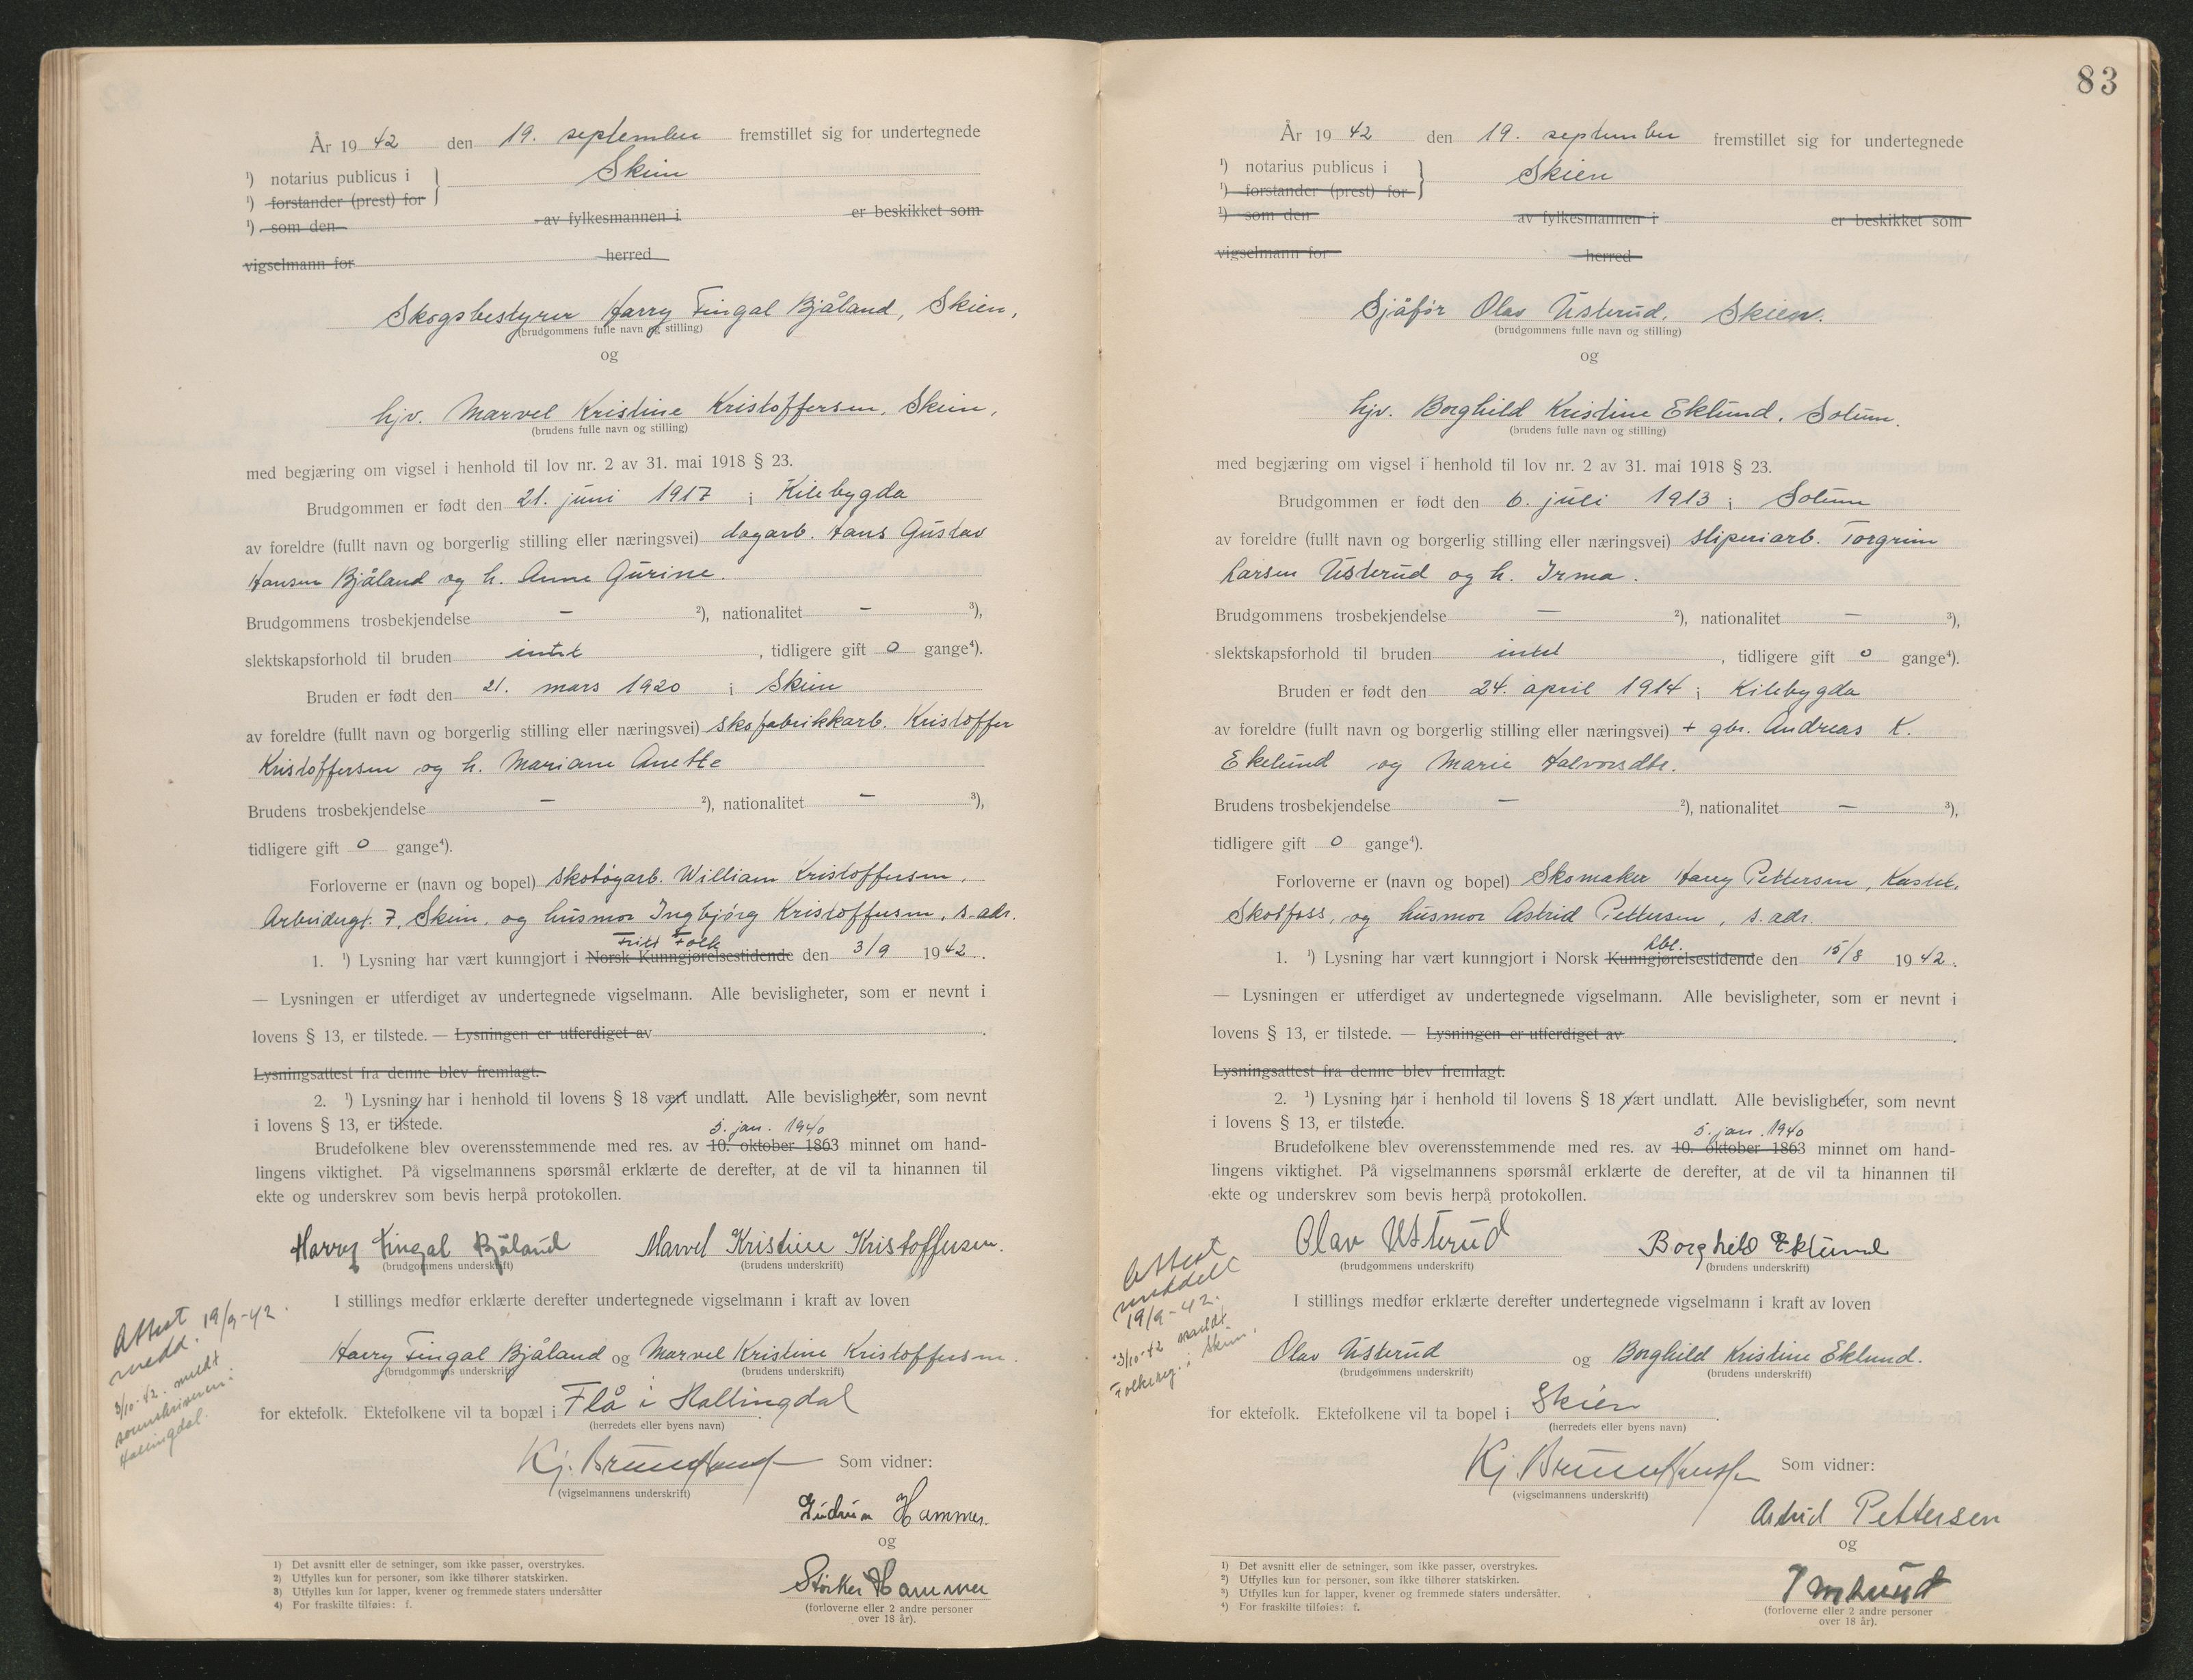 År 19 42 den 19. september fremstillet sig for undertegnede
¹) notarius publicus i Skien
¹) forstander (prest) for
¹) som den av fylkesmannen i er beskikket som
vigselmann for herred
Skogsbestyrer Harry Fingal Bjåland, Skien,
(brudgommens fulle navn og stilling)
og
hjv. Marvel Kristine Kristoffersen, Skien,
(brudens fulle navn og stilling)
med begjæring om vigsel i henhold til lov nr. 2 av 31. mai 1918 § 23.
Brudgommen er født den 21. juni 1917 i Kilebygda
av foreldre (fullt navn og borgerlig stilling eller næringsvei) dagarb. Hans Gustav
Hansen Bjåland og h. Anne Gurine.
Brudgommens trosbekjendelse — ²), nationalitet — ³),
slektskapsforhold til bruden intet, tidligere gift 0 gange⁴).
Bruden er født den 21. mars 1920 i Skien
av foreldre (fullt navn og borgerlig stilling eller næringsvei) skofabrikkarb. Kristoffer
Kristoffersen og h. Mariane Anette
Brudens trosbekjendelse — ²), nationalitet — ³),
tidligere gift 0 gange⁴).
Forloverne er (navn og bopel) skotøyarb. William Kristoffersen,
Arbeidergt. 7, Skien, og husmor Ingbjørg Kristoffersen, s. adr.
Fritt Folk
1. ¹) Lysning har vært kunngjort i Norsk Kunngjørelsestidende den 3/9 1942.
— Lysningen er utferdiget av undertegnede vigselmann. Alle bevisligheter, som er nevnt i
lovens § 13, er tilstede. — Lysningen er utferdiget av .
Lysningsattest fra denne blev fremlagt.
2. ¹) Lysning har i henhold til lovens § 18 vært undlatt. Alle bevisligheter, som nevnt
i lovens § 13, er tilstede.
5. jan. 1940
Brudefolkene blev overensstemmende med res. av 10. oktober 1863 minnet om hand-
lingens viktighet. På vigselmannens spørsmål erklærte de derefter, at de vil ta hinannen til
ekte og underskrev som bevis herpå protokollen.
Harry Fingal Bjåland Marvel Kristine Kristoffersen.
(brudgommens underskrift) (brudens underskrift)
I stillings medfør erklærte derefter undertegnede vigselmann i kraft av loven
Attest 19/9-42.
medd.
3/10-42. meldt
sorenskriveren i
Hallingdal.
Harry Fingal Bjåland og Marvel Kristine Kristoffersen.
(brudgommens underskrift) (brudens underskrift)
for ektefolk. Ektefolkene vil ta bopæl i Flå i Hallingdal.
(herredets eller byens navn)
Kj. Som vidner:
(vigselmannens underskrift)
Gudrun Hammer.
og
Størker Hammer
(forloverne eller 2 andre personer
over 18 år).
1) Det avsnitt eller de setninger, som ikke passer, overstrykes.
2) Utfylles kun for personer, som ikke tilhører statskirken.
3) Utfylles kun for lapper, kvener og fremmede staters undersåtter
4) For fraskilte tilføies: f.
83
År 19 42 den 19. september fremstillet sig for undertegnede
¹) notarius publicus i Skien
¹) forstander (prest) for
¹) som den av fylkesmannen i er beskikket som
vigselmann for herred
Sjåfør Olav Usterud, Skien.
(brudgommens fulle navn og stilling)
og
hjv. Borghild Kristine Eklund, Solum.
(brudens fulle navn og stilling)
med begjæring om vigsel i henhold til lov nr. 2 av 31. mai 1918 § 23.
Brudgommen er født den 6. juli 1913 i Solum
av foreldre (fullt navn og borgerlig stilling eller næringsvei) sliperiarb. Torgrim
Larsen Usterud og h. Irma.
Brudgommens trosbekjendelse — ²), nationalitet — ³),
slektskapsforhold til bruden intet, tidligere gift 0 gange⁴).
Bruden er født den 24. april 1914 i Kilebygda
av foreldre (fullt navn og borgerlig stilling eller næringsvei) + gbr. Andreas K.
Ekelund og Marie Halvorsdtr.
Brudens trosbekjendelse — ²), nationalitet — ³),
tidligere gift 0 gange⁴).
Forloverne er (navn og bopel) Skomaker Harry Pettersen, Kastet,
Skotfoss, og husmor Astrid Pettersen, s. adr.
lbl.
1. ¹) Lysning har vært kunngjort i Norsk Kunngjørelsestidende den 15/8 1942.
— Lysningen er utferdiget av undertegnede vigselmann. Alle bevisligheter, som er nevnt i
lovens § 13, er tilstede. — Lysningen er utferdiget av .
Lysningsattest fra denne blev fremlagt.
2. ¹) Lysning har i henhold til lovens § 18 vært undlatt. Alle bevisligheter, som nevnt
i lovens § 13, er tilstede.
5. jan. 1940
Brudefolkene blev overensstemmende med res. av 10. oktober 1863 minnet om hand-
lingens viktighet. På vigselmannens spørsmål erklærte de derefter, at de vil ta hinannen til
ekte og underskrev som bevis herpå protokollen.
Olav Usterud Borghild Eklund
(brudgommens underskrift) (brudens underskrift)
Attest
meddelt
19/9-42.
3/10-42 meldt
Folkereg. i Skien.
I stillings medfør erklærte derefter undertegnede vigselmann i kraft av loven
Olav Usterud og Borghild Kristine Eklund.
(brudgommens underskrift) (brudens underskrift)
for ektefolk. Ektefolkene vil ta bopel i Skien.
(herredets eller byens navn)
Kj. Som vidner:
(vigselmannens underskrift)
Astrid Pettersen
og
(forloverne eller 2 andre personer
over 18 år).
1) Det avsnitt eller de setninger, som ikke passer, overstrykes.
2) Utfylles kun for personer, som ikke tilhører statskirken.
3) Utfylles kun for lapper, kvener og fremmede staters undersåtter.
4) For fraskilte tilføies: f.